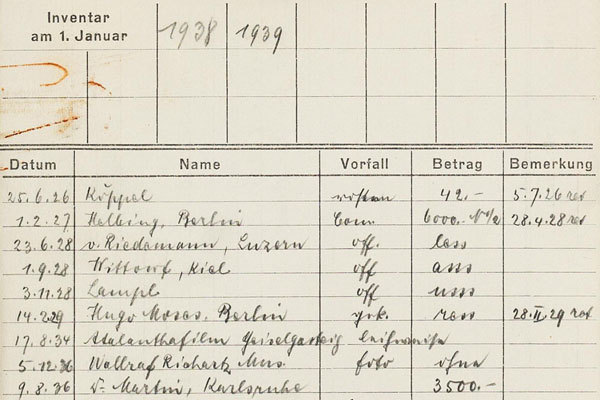 Inventar
am 1. Januar 1938 1939
Datum Name Vorfall Betrag Bemerkung
25.6.26 Köppel 42.- 5.7.26 ret
1.2.27 Helbing, Berlin Com. 6000. 28.4.28 ret
23.6.28 v. Riedemann, Luzern off. less
1.9.28 Wittorf, Kiel off ass
3.11.28 Lampl off uss
14.2.29 Hugo Moses. Berlin gek. ress 28.II.29 ret
17.8.34 Atalanthafilm Geiselgasteig leihweise
5.12.36 Wallraf Richartz Mus. foto ohne
9.8.36 v. Martin, Karlsruhe 3500.-